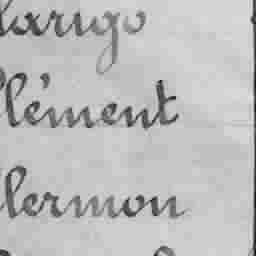 larigo
lément
lermon